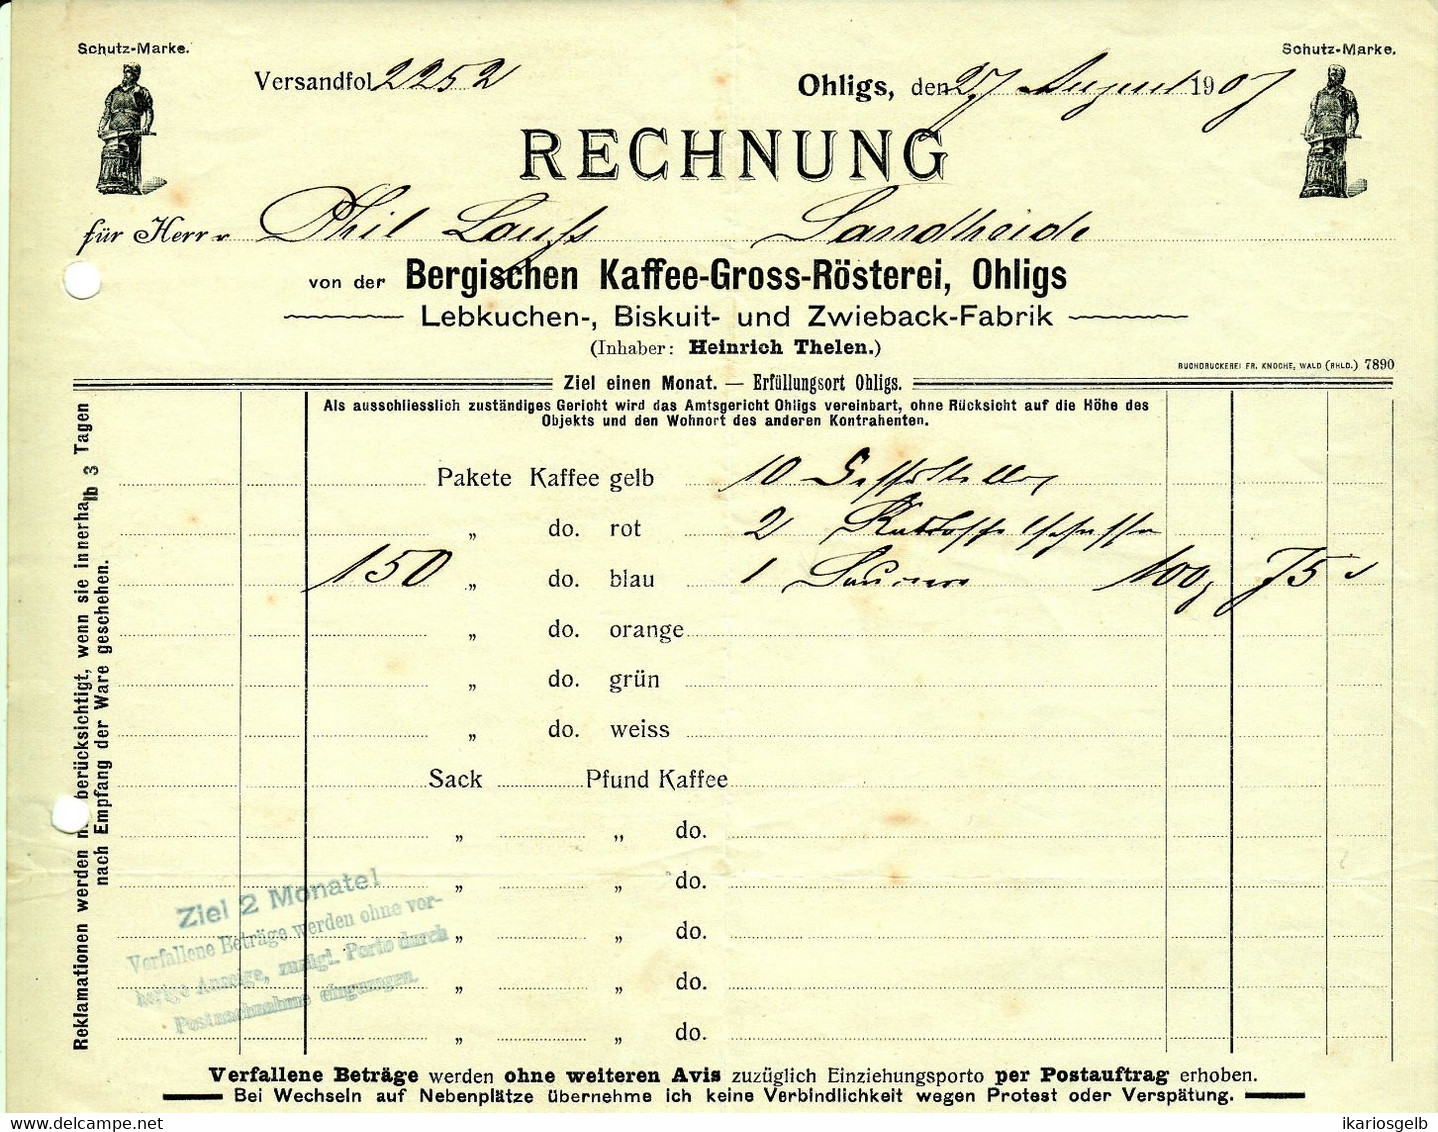 Schutz-Marke. Schutz-Marke.
Versandfol. 2252 Ohligs, den 27 August 1907
RECHNUNG
für Herrn Phil Sandheide
von der Bergischen Kaffee-Gross-Rösterei, Ohligs
Lebkuchen-, Biskuit- und Zwieback-Fabrik
(Inhaber: Heinrich Thelen.)
BUCHDRUCKEREI FR. KNOCHE, WALD (RHLD.) 7890
Ziel einen Monat. — Erfüllungsort Ohligs.
Als ausschliesslich zuständiges Gericht wird das Amtsgericht Ohligs vereinbart, ohne Rücksicht auf die Höhe des
Objekts und den Wohnort des anderen Kontrahenten.
Pakete Kaffee gelb 10
„ do. rot 2
150 „ do. blau 1 100 75
„ do. orange
„ do. grün
„ do. weiss
Sack Pfund Kaffee
„ „ do.
„ „ do.
„ „ do.
„ „ do.
„ „ do.
Reklamationen werden berücksichtigt, wenn sie innerhalb 3 Tagen
nach Empfang der Ware geschehen.
Ziel 2 Monate!
Verfallene Beträge werden ohne vor-
herige Anzeige, zuzügl. Porto durch
Postnachnahme eingezogen.
Verfallene Beträge werden ohne weiteren Avis zuzüglich Einziehungsporto per Postauftrag erhoben.
Bei Wechseln auf Nebenplätze übernehme ich keine Verbindlichkeit wegen Protest oder Verspätung.
ikariosgelb